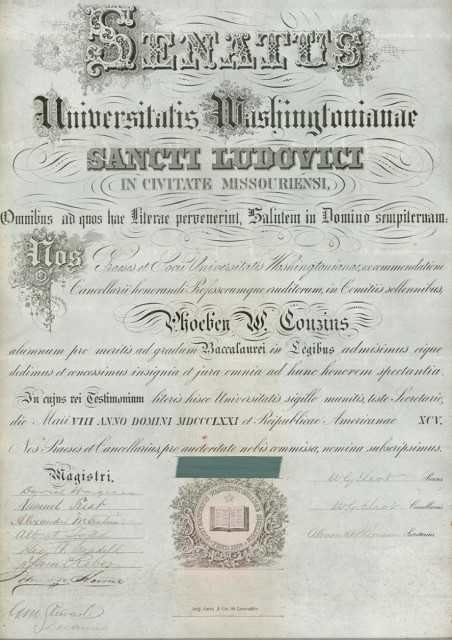 SENATUS
Universitatis Washingtonianae
SANCTI LUDOVICI
IN CIVITATE MISSOURIENSI,
Omnibus ad quos hae Literae pervenerint, Salutem in Domino sempiternam:
Nos Praeses et Socii Universitatis Washingtonianae, ex commendatione
Cancellarii honorandi Professorumque eruditorum, in Comitiis sollennibus,
Phoeben W. Couzins
alumnum pro meritis ad gradum Baccalaurei in Legibus admisimus eique
dedimus et concessimus insignia et jura omnia ad hunc honorem spectantia.
In cujus rei Testimonium literis hisce Universitatis sigillo munitis, teste Secretario,
die Maii VIII ANNO DOMINI MDCCCLXXI et Reipublicae Americanae XCV.
Nos Praeses et Cancellarius, pro auctoritate nobis commissa, nomina subscripsimus.
Magistri.
W G Eliot Praeses
Samuel Treat
W G Eliot Cancellarius
Secretarius